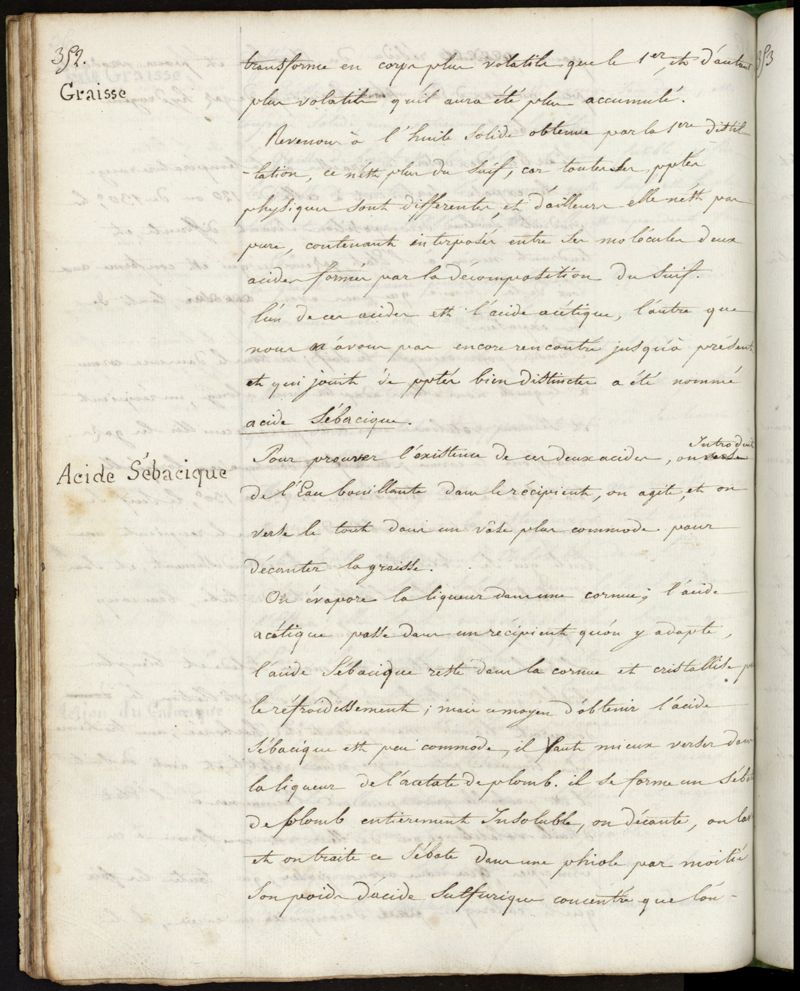 352.
Graisse
transforme en corps plus volatils que le 1er, et d'autant
plus volatils qu'il aura été plus accumulé.
Revenons à l'huile solide obtenue par la 1ere distil
-lation, ce n'est plus du suif, car toutes ses pptés
physiques sont differentes, et d'ailleurs elle n'est pas
pure, contenant interposés entre ses molécules deux
acides formés par la décomposition du suif.
l'un de ces acides est l'acide acétique, l'autre que
nous n'avons pas encore rencontré jusqu'à présent
et qui jouit de pptés bien distinctes a été nommé
acide Sébacique.
Acide Sébacique
Pour prouver l'existence de ces deux acides, on Introduit
de l'Eau bouillante dans le récipient, on agite, et on
verse le tout dans un vase plus commode pour
décanter la graisse.
On évapore la liqueur dans une cornue; l'acide
acétique passe dans un récipient qu'on y adapte,
l'acide Sébacique reste dans la cornue et cristallise par
le refroidissement; mais ce moyen d'obtenir l'acide
Sébacique est peu commode, il Vaut mieux verser dans
la liqueur de l'acetate de plomb. il se forme un Séba
de plomb entièrement Insoluble, on décante, on lav
et on traite ce Sébate dans une phiole par moitié
son poids d'acide Sulfurique concentré que l'on-
353